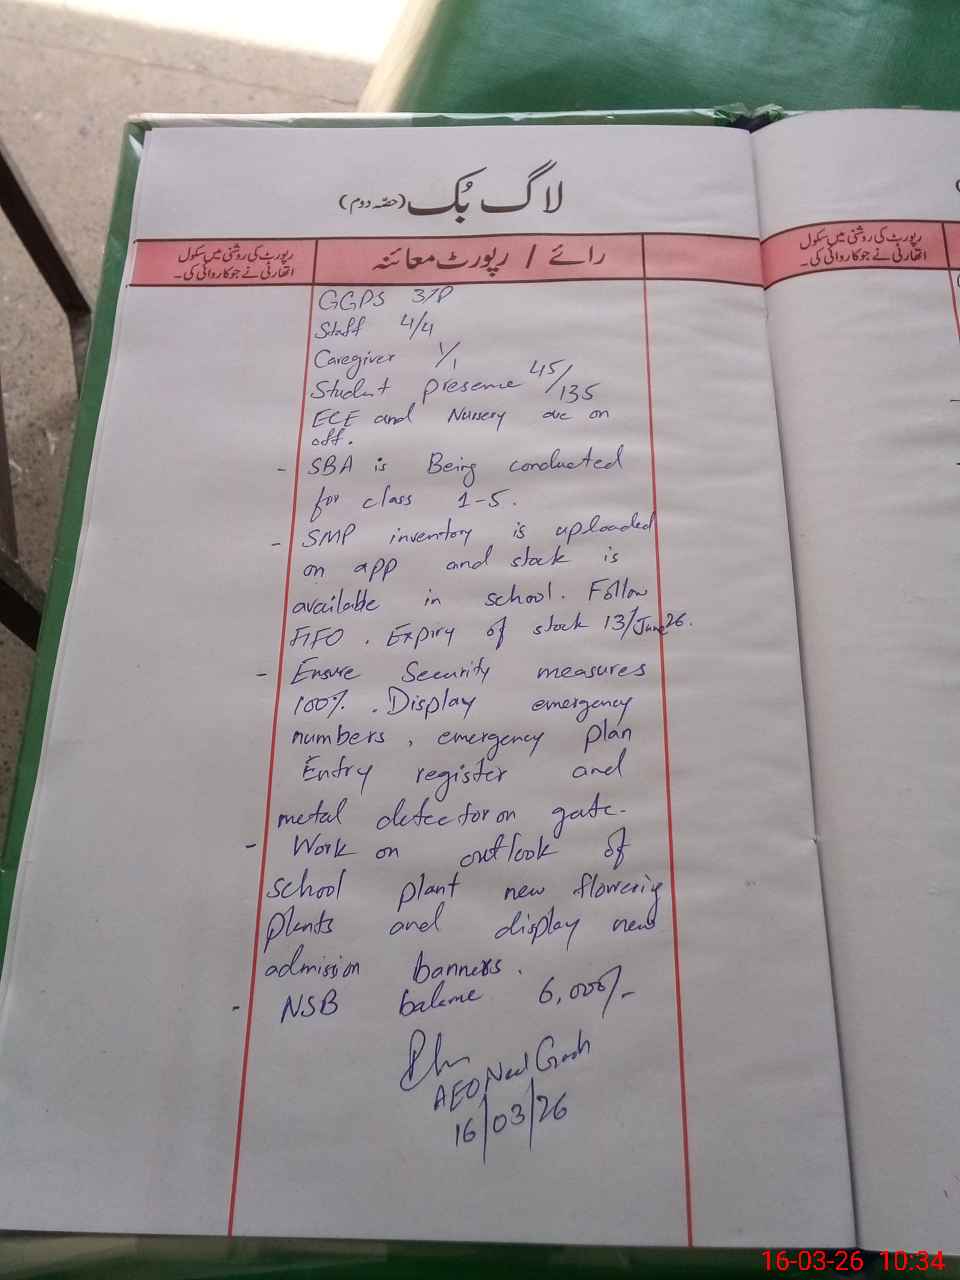 لاگ بُک (حصّہ دوم)
رپورٹ کی روشنی میں سکول
اتھارٹی نے جو کاروائی کی۔
رائے / رپورٹ معائنہ
رپورٹ کی روشنی میں سکول
اتھارٹی نے جو کاروائی کی۔
GGPS 31P
Staff 4/4
Caregiver 1/1
Student presence 45/135
ECE and Nursery are on
off.
- SBA is Being conducted
for class 1-5.
- SMP inventory is uploaded
on app and stock is
available in school. Follow
FIFO. Expiry of stock 13/June26.
- Ensure Security measures
100%. Display emergency
numbers, emergency plan
Entry register and
metal detector on gate.
- Work on outlook of
school plant new flowerig
plants and display new
admission banners.
- NSB balance 6,000/-
AEO
16/03/26
16-03-26 10:34